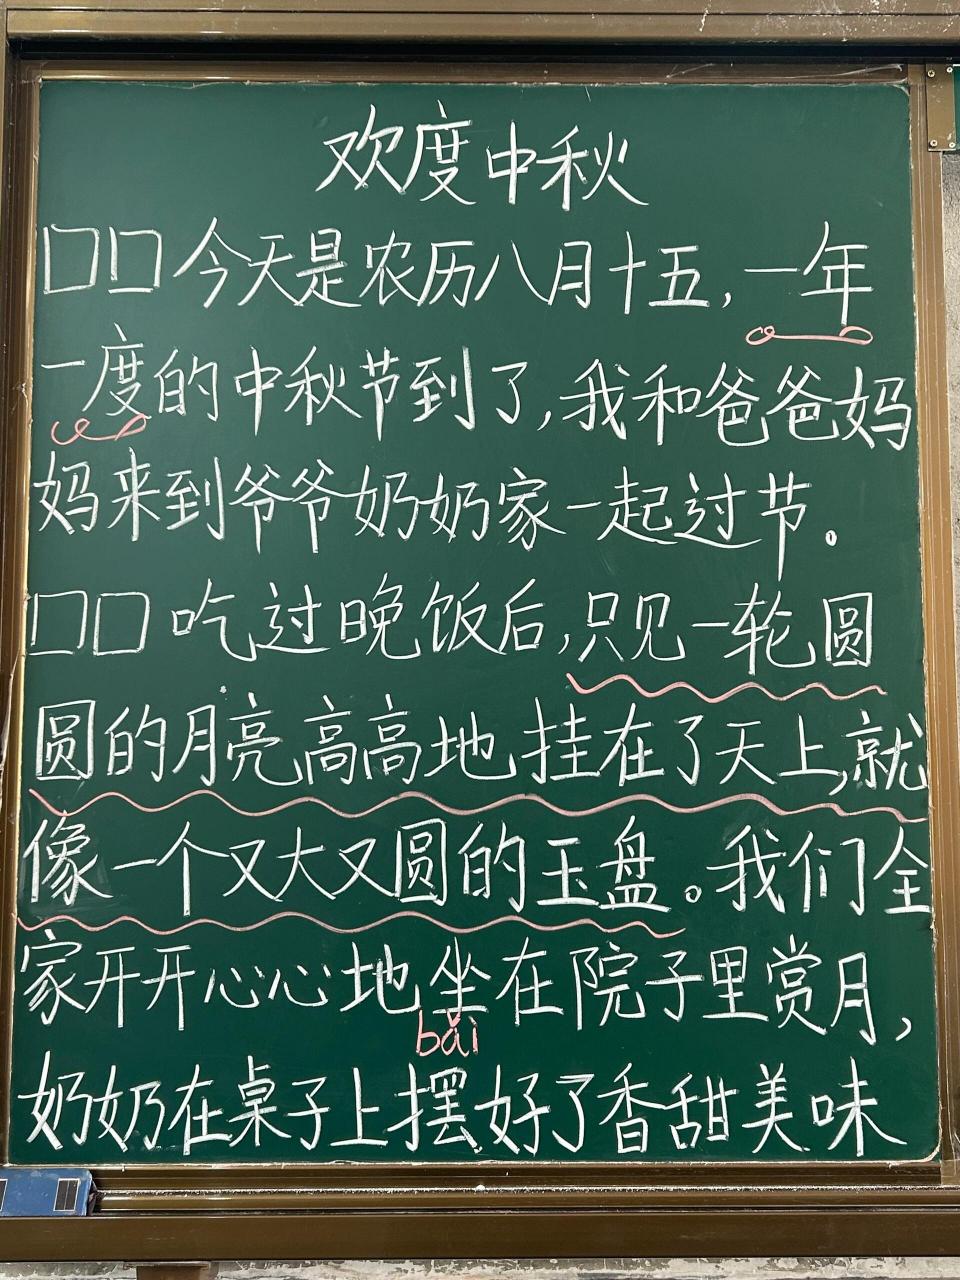 欢度中秋
口口今天是农历八月十五,一年
一度的中秋节到了,我和爸爸妈
妈来到爷爷奶奶家一起过节。
口口吃过晚饭后,只见一轮圆
圆的月亮高高地挂在了天上,就
像一个又大又圆的玉盘。我们全
家开开心心地坐在院子里赏月,
bǎi
奶奶在桌子上摆好了香甜美味